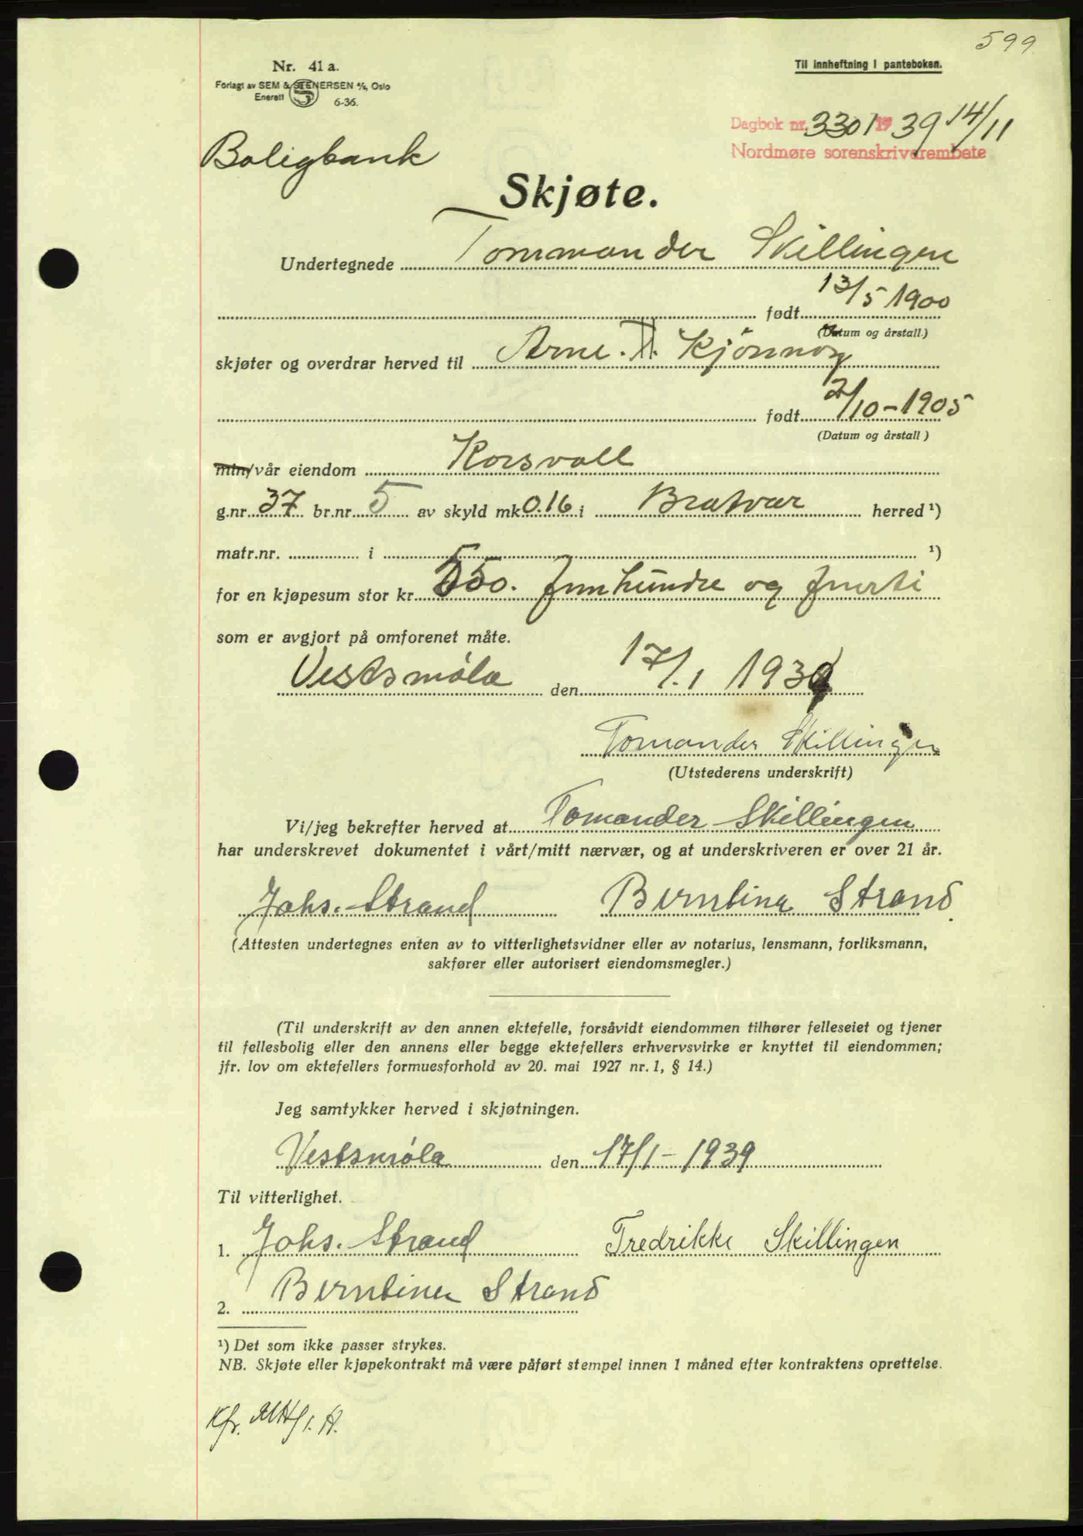 599
Nr. 41 a.
Forlagt av SEM & STENERSEN A/S, Oslo
Enerett 6-36.
Til innheftning i panteboken.
Dagbok nr. 3301 19 39 14/11
Nordmøre sorenskriverembete
Boligbank
Skjøte.
Undertegnede Tommander Skillingen
født 13/5 1900
(Datum og årstall.)
skjøter og overdrar herved til Arne. Kjönnøy
født 2/10-1905
(Datum og årstall)
min/vår eiendom Korsvoll
g.nr. 37 br.nr. 5 av skyld mk 0.16 i Bratvær herred ¹)
matr.nr. i ¹)
for en kjøpesum stor kr. 550. femhundre og femti
som er avgjort på omforenet måte.
Vestsmöla den 17/1 1939
Tomander Skillingen
(Utstederens underskrift)
Vi/jeg bekrefter herved at Tomander Skillingen
har underskrevet dokumentet i vårt/mitt nærvær, og at underskriveren er over 21 år.
Johs. Strand Berntine Strand
(Attesten undertegnes enten av to vitterlighetsvidner eller av notarius, lensmann, forliksmann,
sakfører eller autorisert eiendomsmegler.)
(Til underskrift av den annen ektefelle, forsåvidt eiendommen tilhører felleseiet og tjener
til fellesbolig eller den annens eller begge ektefellers erhvervsvirke er knyttet til eiendommen;
jfr. lov om ektefellers formuesforhold av 20. mai 1927 nr. 1, § 14.)
Jeg samtykker herved i skjøtningen.
Vestsmöla den 17/1-1939
Til vitterlighet.
1. Johs. Strand Fredrikke Skillingen
2. Berntine Strand
¹) Det som ikke passer strykes.
NB. Skjøte eller kjøpekontrakt må være påført stempel innen 1 måned efter kontraktens oprettelse.
Kfr.